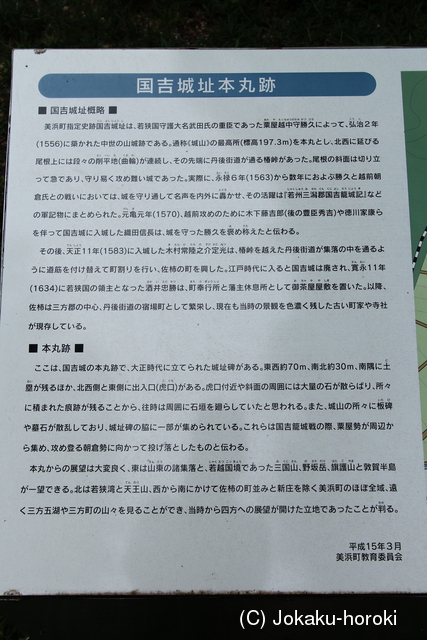 国吉城址本丸跡
■ 国吉城址概略 ■
美浜町指定史跡国吉城址は、若狭国守護大名武田氏の重臣であった粟屋越中守勝久によって、弘治２年
(1556)に築かれた中世の山城跡である。通称《城山》の最高所(標高197.3m)を本丸とし、北西に延びる
尾根上には段々の削平地(曲輪)が連続し、その先端に丹後街道が通る椿峠があった。尾根の斜面は切り立
って急であり、守り易く攻め難い城であった。実際に、永禄６年(1563)から数年におよぶ勝久と越前朝
倉氏との戦いにおいては、城を守り通して名声を内外に轟かせ、その活躍は『若州三潟郡国吉籠城記』など
の軍記物にまとめられた。元亀元年(1570)、越前攻めのために木下藤吉郎(後の豊臣秀吉)や徳川家康ら
を伴って国吉城に入城した織田信長は、城を守った勝久を褒め称えたと伝わる。
その後、天正11年(1583)に入城した木村常陸之介定光は、椿峠を越えた丹後街道が集落の中を通るよ
うに道筋を付け替えて町割りを行い、佐柿の町を興した。江戸時代に入ると国吉城は廃され、寛永11年
(1634)に若狭国の領主となった酒井忠勝は、町奉行所と藩主休息所として御茶屋屋敷を置いた。以降、
佐柿は三方郡の中心、丹後街道の宿場町として繁栄し、現在も当時の景観を色濃く残した古い町家や寺社
が現存している。
■ 本丸跡 ■
ここは、国吉城の本丸跡で、大正時代に立てられた城址碑がある。東西約70m、南北約30m、南隅に土
塁が残るほか、北西側と東側に出入口(虎口)がある。虎口付近や斜面の周囲には大量の石が散らばり、所々
に積まれた痕跡が残ることから、往時は周囲に石垣を廻らしていたと思われる。また、城山の所々に板碑
や墓石が散乱しており、城址碑の脇に一部が集められている。これらは国吉籠城戦の際、粟屋勢が周辺か
ら集め、攻め登る朝倉勢に向かって投げ落としたものと伝わる。
本丸からの展望は大変良く、東は山東の諸集落と、若越国境であった三国山、野坂岳、旗護山と敦賀半島
が一望できる。北は若狭湾と天王山、西から南にかけて佐柿の町並みと新庄を除く美浜町のほぼ全域、遠
く三方五湖や三方町の山々を見ることができ、当時から四方への展望が開けた立地であったことが判る。
平成15年３月
美浜町教育委員会
(C) Jokaku-horoki